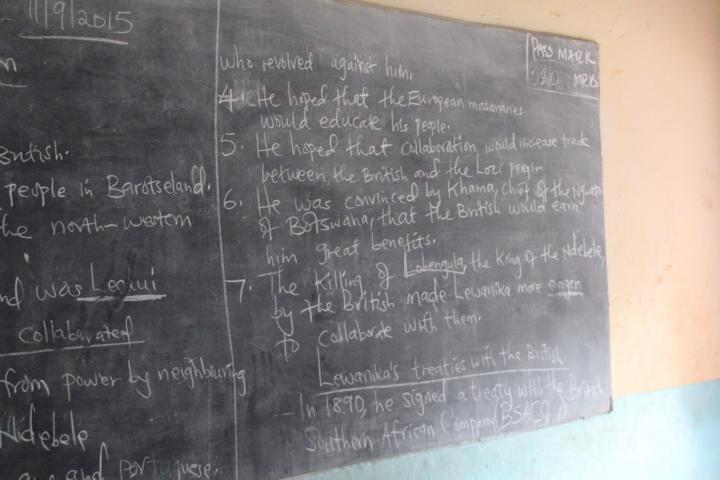 11/9/2015
British.
people in Barotseland.
the north-western
and was Lequi
collaborated
from power by neighbouring
Ndebele
and portuguese.
who revolved against him.
4. He hoped that the European missionaries
would educate his people.
5. He hoped that collaboration would increase trade
between the British and the Lozi people.
6. He was convinced by Khama, chief of the
of Botswana, that the British would earn
him great benefits.
7. The Killing of Lobengula, the King of the Ndebele,
by the British made Lewanika more eager
to collaborate with them.
Lewanika's treaties with the British
- In 1890, he signed a treaty with the British
Southern African Company (BSACo)
PASS MARK
MRKS